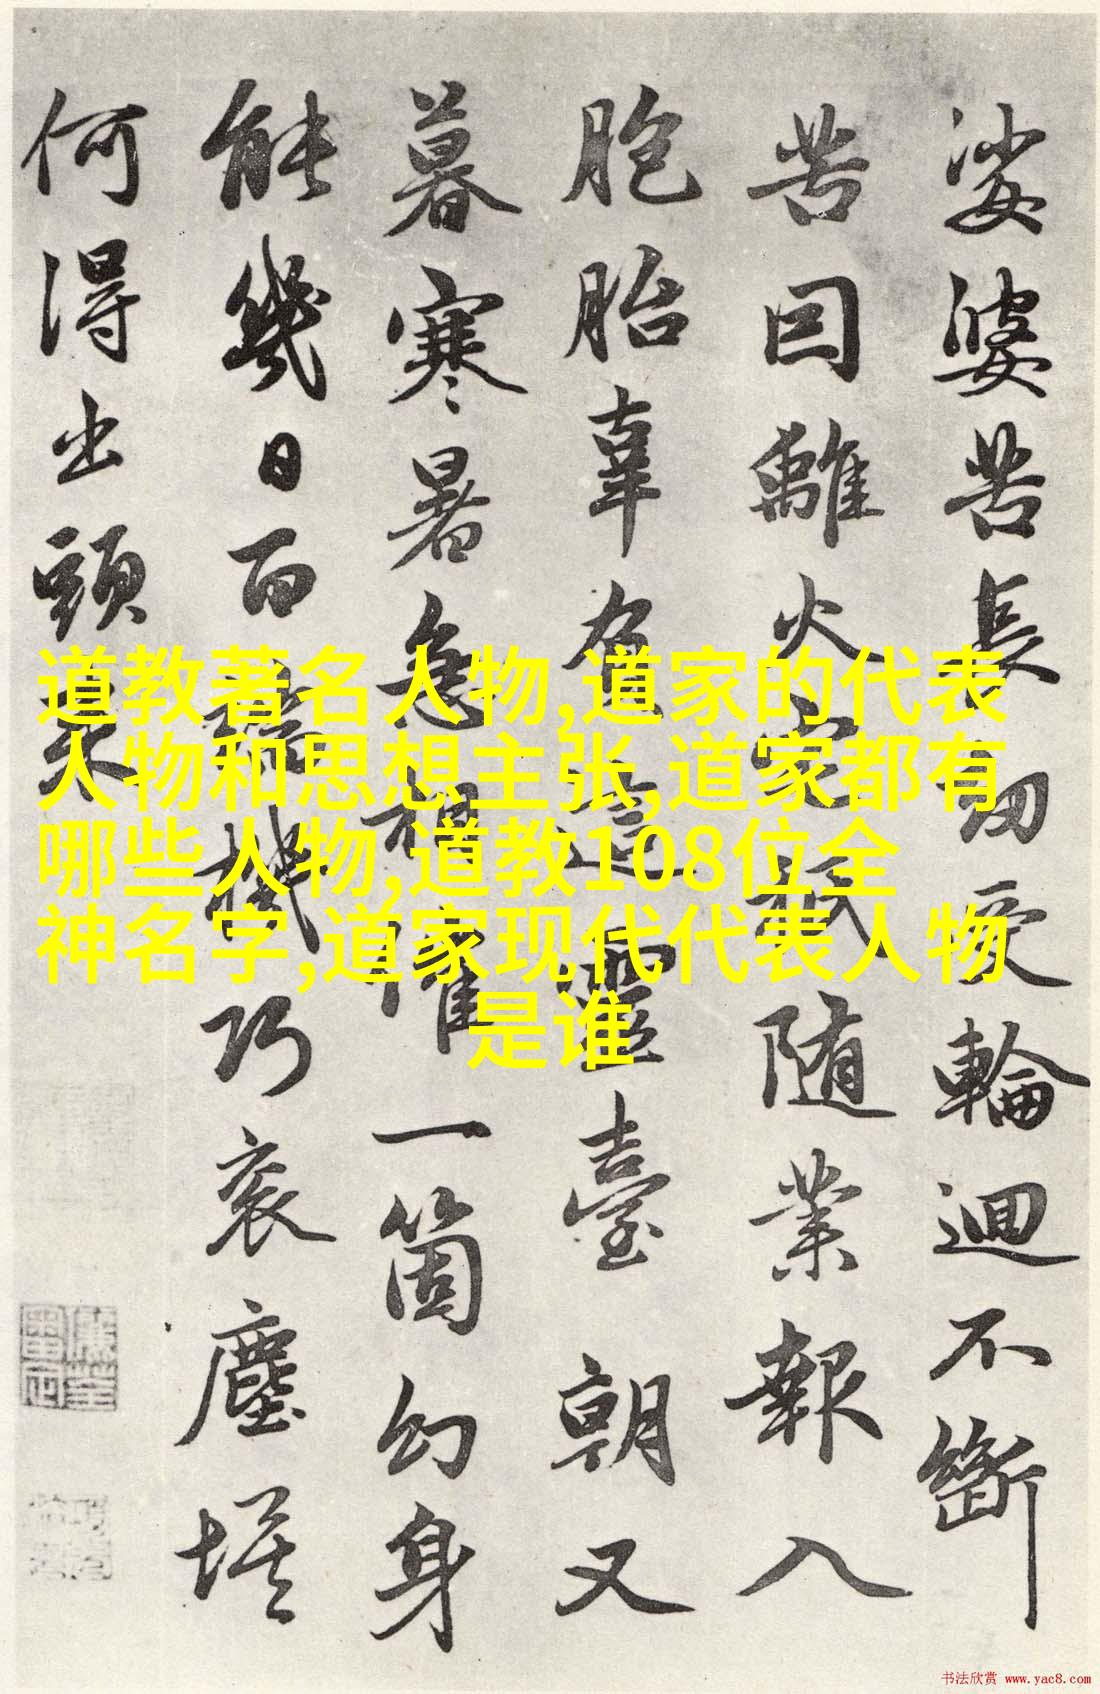 娑婆苦長劫受輪迴不斷
苦因離火宅祇隨業報入
胞胎辜負這靈臺朝又
暮寒暑急相催一箇幻身
能幾日百端機巧衮塵埃
何得出頭來
道教著名人物,道家的代表
人物和思想主张,道家都有
哪些人物,道教108位全
神名字,道家现代代表人物
是谁
书法欣赏 www.yac8.com